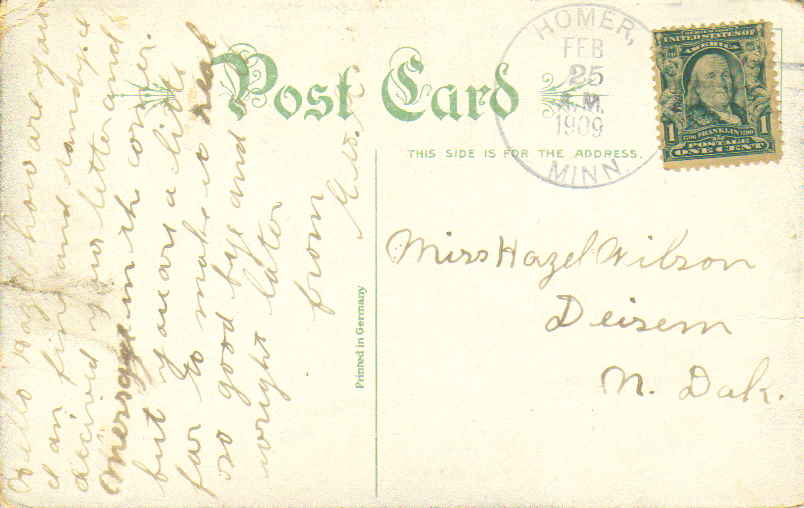 Post Card
THIS SIDE IS FOR THE ADDRESS.
HOMER,
FEB
25
A.M.
1909
MINN.
UNITED STATES OF
AMERICA
1 FRANKLIN 1
POSTAGE
ONE CENT
Hello Hazel how are you
I am fine and dandy. I
received your letter and
message in the corner.
but you are a little
far to make it real
so good bye and
wright later
from
Printed in Germany
Miss Hazel Wilson
Deisem
N. Dak.